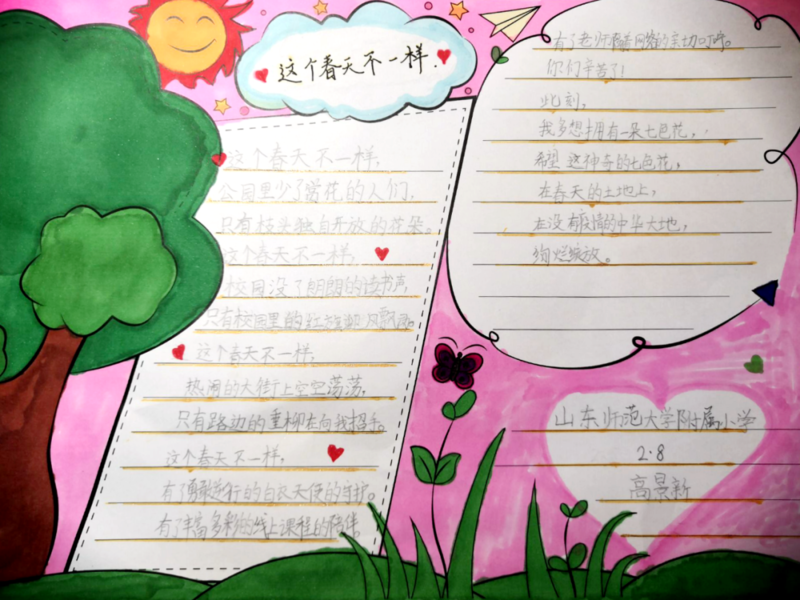 这个春天不一样.
这个春天不一样，
公园里少了赏花的人们，
只有枝头独自开放的花朵。
这个春天不一样，
校园没了朗朗的读书声，
只有校园里的红旗迎风飘扬。
这个春天不一样，
热闹的大街上空空荡荡，
只有路边的垂柳在向我招手。
这个春天不一样，
有了勇敢逆行的白衣天使的守护。
有了丰富多彩的线上课程的陪伴
有了老师隔着网络的亲切叮咛。
你们辛苦了！
此刻，
我多想拥有一朵七色花，
希望这神奇的七色花，
在春天的土地上，
在没有疫情的中华大地，
绚烂绽放。
山东师范大学附属小学
2·8
高景新